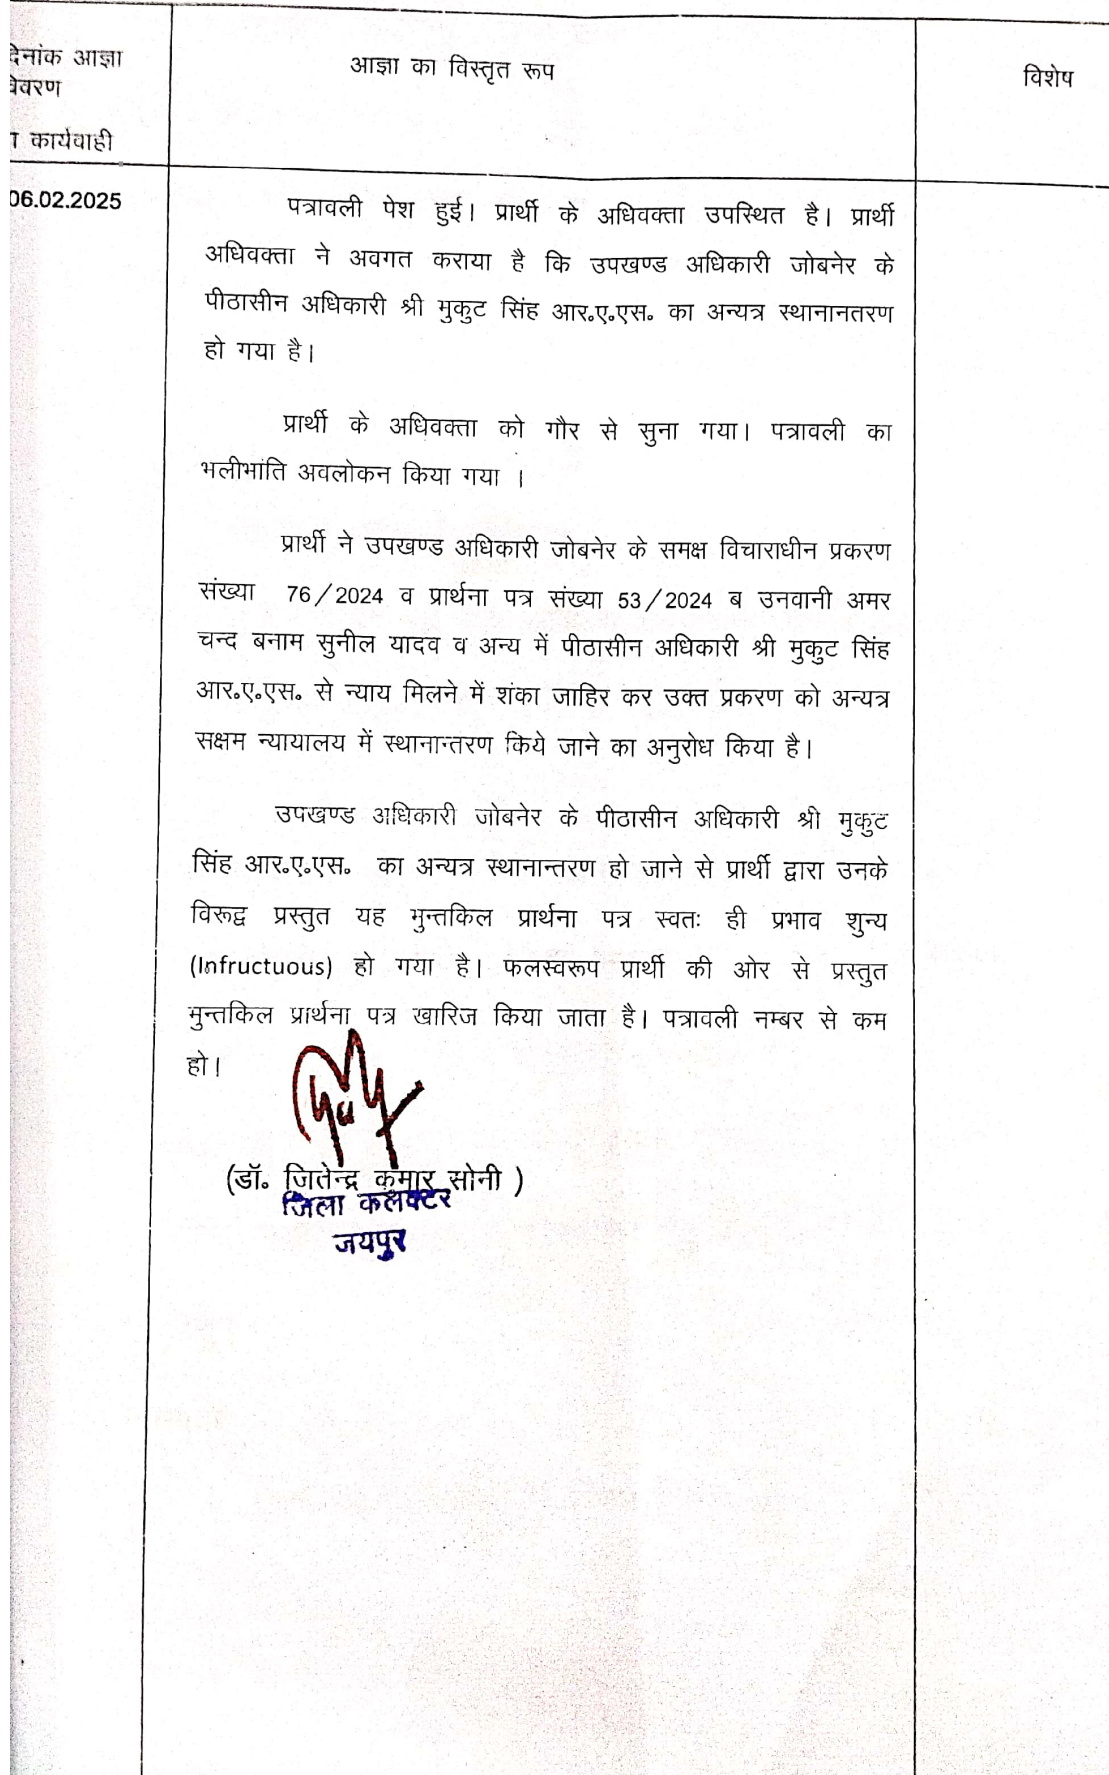 दिनांक आज्ञा
विवरण
आज्ञा का विस्तृत रूप
विशेष
कार्यवाही
06.02.2025
पत्रावली पेश हुई। प्रार्थी के अधिवक्ता उपस्थित है। प्रार्थी
अधिवक्ता ने अवगत कराया है कि उपखण्ड अधिकारी जोबनेर के
पीठासीन अधिकारी श्री मुकुट सिंह आर०ए०एस० का अन्यत्र स्थानानतरण
हो गया है।
प्रार्थी के अधिवक्ता को गौर से सुना गया। पत्रावली का
भलीभांति अवलोकन किया गया ।
प्रार्थी ने उपखण्ड अधिकारी जोबनेर के समक्ष विचाराधीन प्रकरण
संख्या 76/2024 व प्रार्थना पत्र संख्या 53/2024 ब उनवानी अमर
चन्द बनाम सुनील यादव व अन्य में पीठासीन अधिकारी श्री मुकुट सिंह
आर०ए०एस० से न्याय मिलने में शंका जाहिर कर उक्त प्रकरण को अन्यत्र
सक्षम न्यायालय में स्थानान्तरण किये जाने का अनुरोध किया है।
उपखण्ड अधिकारी जोबनेर के पीठासीन अधिकारी श्री मुकुट
सिंह आर०ए०एस० का अन्यत्र स्थानान्तरण हो जाने से प्रार्थी द्वारा उनके
विरूद्व प्रस्तुत यह मुन्तकिल प्रार्थना पत्र स्वतः ही प्रभाव शुन्य
(Infructuous) हो गया है। फलस्वरूप प्रार्थी की ओर से प्रस्तुत
मुन्तकिल प्रार्थना पत्र खारिज किया जाता है। पत्रावली नम्बर से कम
हो।
(डॉ० जितेन्द्र कुमार सोनी )
जिला कलक्टर
जयपुर